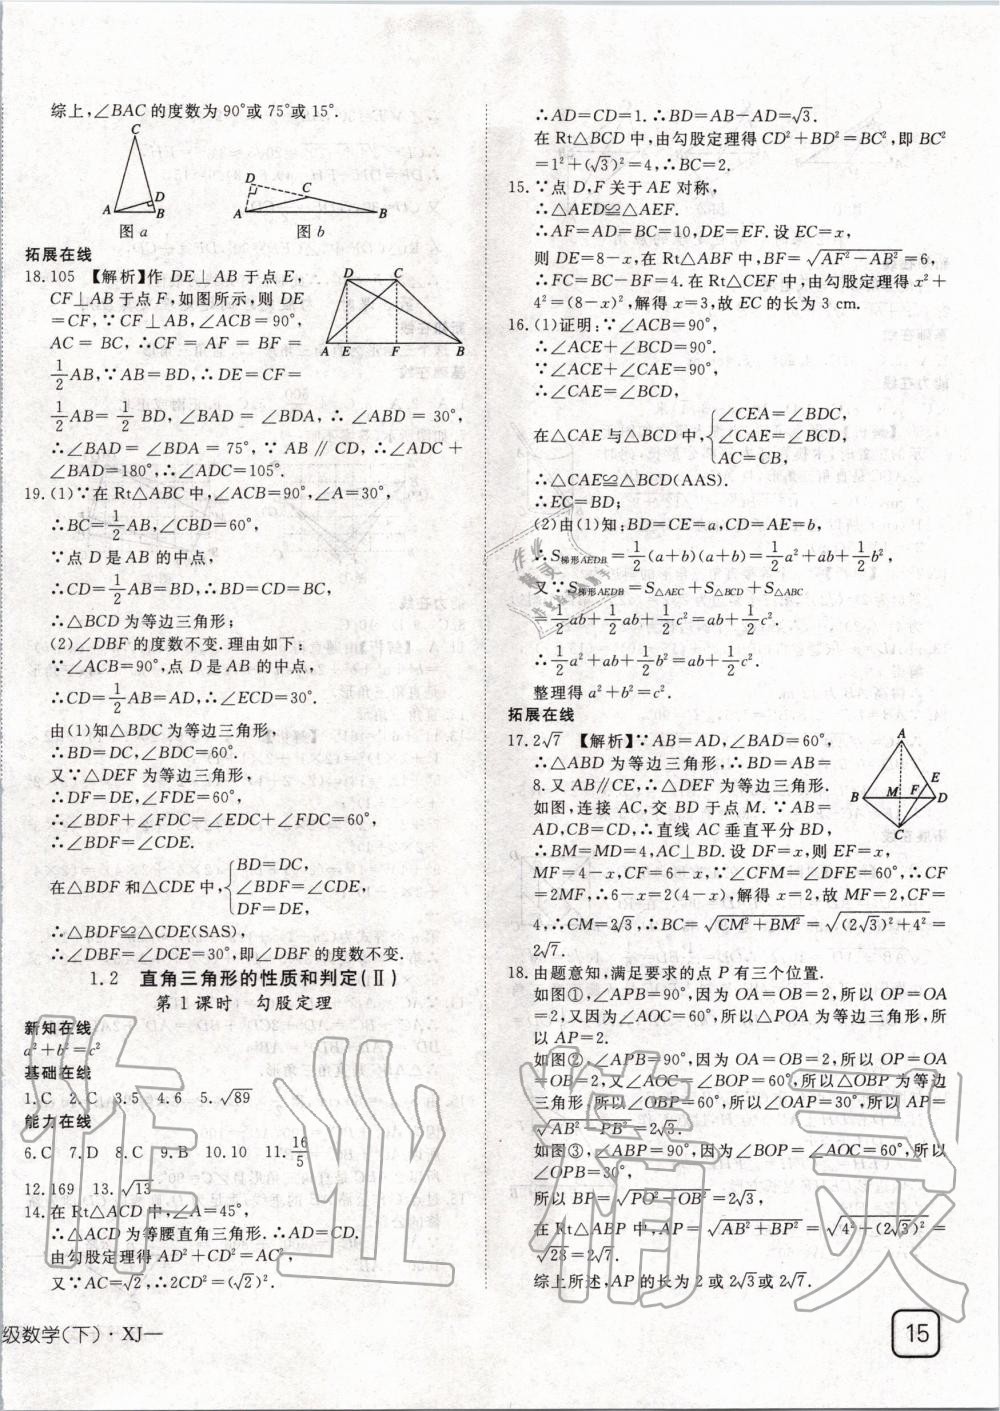 综上,∠BAC的度数为90°或75°或15°.
C
D
A
B
图a
D
C
A
B
图b
拓展在线
18.105 【解析】作DE⊥AB于点E,
CF⊥AB于点F,如图所示,则DE
=CF,∵CF⊥AB,∠ACB=90°,
AC=BC,∴CF=AF=BF=
D C
A E F B
1/2AB,∵AB=BD,∴DE=CF=
1/2AB=1/2BD,∠BAD=∠BDA,∴∠ABD=30°,
∴∠BAD=∠BDA=75°,∵AB∥CD,∴∠ADC+
∠BAD=180°,∴∠ADC=105°.
19.(1)∵在Rt△ABC中,∠ACB=90°,∠A=30°,
∴BC=1/2AB,∠CBD=60°,
∵点D是AB的中点,
∴CD=1/2AB,∴BD=CD=BC,
∴△BCD为等边三角形;
(2)∠DBF的度数不变.理由如下:
∵∠ACB=90°,点D是AB的中点,
∴CD=1/2AB=AD,∴∠ECD=30°.
由(1)知△BDC为等边三角形,
∴BD=DC,∠BDC=60°.
又∵△DEF为等边三角形,
∴DF=DE,∠FDE=60°,
∴∠BDF+∠FDC=∠EDC+∠FDC=60°,
∴∠BDF=∠CDE.
在△BDF和△CDE中,{BD=DC,
∠BDF=∠CDE,
DF=DE,
∴△BDF≌△CDE(SAS),
∴∠DBF=∠DCE=30°,即∠DBF的度数不变.
1.2 直角三角形的性质和判定(Ⅱ)
第1课时 勾股定理
新知在线
a²+b²=c²
基础在线
1.C 2.C 3.5 4.6 5.√89
能力在线
6.C 7.D 8.C 9.B 10.10 11.16/5
12.169 13.√13
14.在Rt△ACD中,∠A=45°,
∴△ACD为等腰直角三角形.∴AD=CD.
由勾股定理得AD²+CD²=AC²,
又∵AC=√2,∴2CD²=(√2)².
级数学(下)·XJ—
∴AD=CD=1.∴BD=AB-AD=√3.
在Rt△BCD中,由勾股定理得CD²+BD²=BC²,即BC²
=1²+(√3)²=4,∴BC=2.
15.∵点D,F关于AE对称,
∴△AED≌△AEF.
∴AF=AD=BC=10,DE=EF.设EC=x,
则DE=8-x,在Rt△ABF中,BF=√(AF²-AB²)=6,
∴FC=BC-BF=4.在Rt△CEF中,由勾股定理得x²+
4²=(8-x)²,解得x=3,故EC的长为3 cm.
16.(1)证明:∵∠ACB=90°,
∴∠ACE+∠BCD=90°.
∵∠ACE+∠CAE=90°,
∴∠CAE=∠BCD,
在△CAE与△BCD中,{∠CEA=∠BDC,
∠CAE=∠BCD,
AC=CB,
∴△CAE≌△BCD(AAS).
∴EC=BD;
(2)由(1)知:BD=CE=a,CD=AE=b,
∴S梯形AEDB=1/2(a+b)(a+b)=1/2a²+ab+1/2b²,
又∵S梯形AEDB=S△AEC+S△BCD+S△ABC
=1/2ab+1/2ab+1/2c²=ab+1/2c².
∴1/2a²+ab+1/2b²=ab+1/2c².
整理得a²+b²=c².
拓展在线
17.2√7 【解析】∵AB=AD,∠BAD=60°,
∴△ABD为等边三角形,∴BD=AB=
8.又AB∥CE,∴△DEF为等边三角形.
如图,连接AC,交BD于点M.∵AB=
AD,CB=CD,∴直线AC垂直平分BD,
A
E
B M F D
C
∴BM=MD=4,AC⊥BD.设DF=x,则EF=x,
MF=4-x,CF=6-x,∵∠CFM=∠DFE=60°,∴CF
=2MF,∴6-x=2(4-x),解得x=2,故MF=2,CF=
4,∴CM=2√3,∴BC=√(CM²+BM²)=√((2√3)²+4²)=
2√7.
18.由题意知,满足要求的点P有三个位置.
如图①,∠APB=90°,因为OA=OB=2,所以OP=OA
=2,又因为∠AOC=60°,所以△POA为等边三角形,所
以AP=2.
如图②,∠APB=90°,因为OA=OB=2,所以OP=OA
=OB=2,又∠AOC=∠BOP=60°,所以△OBP为等边
三角形,所以∠OBP=60°,所以∠OAP=30°,所以AP=
√(AB²-PB²)=2√3.
如图③,∠ABP=90°,因为∠BOP=∠AOC=60°,所以
∠OPB=30°,
所以BP=√(PO²-OB²)=2√3,
在Rt△ABP中,AP=√(AB²+BP²)=√(4²+(2√3)²)=
√28=2√7.
综上所述,AP的长为2或2√3或2√7.
15
作业精灵